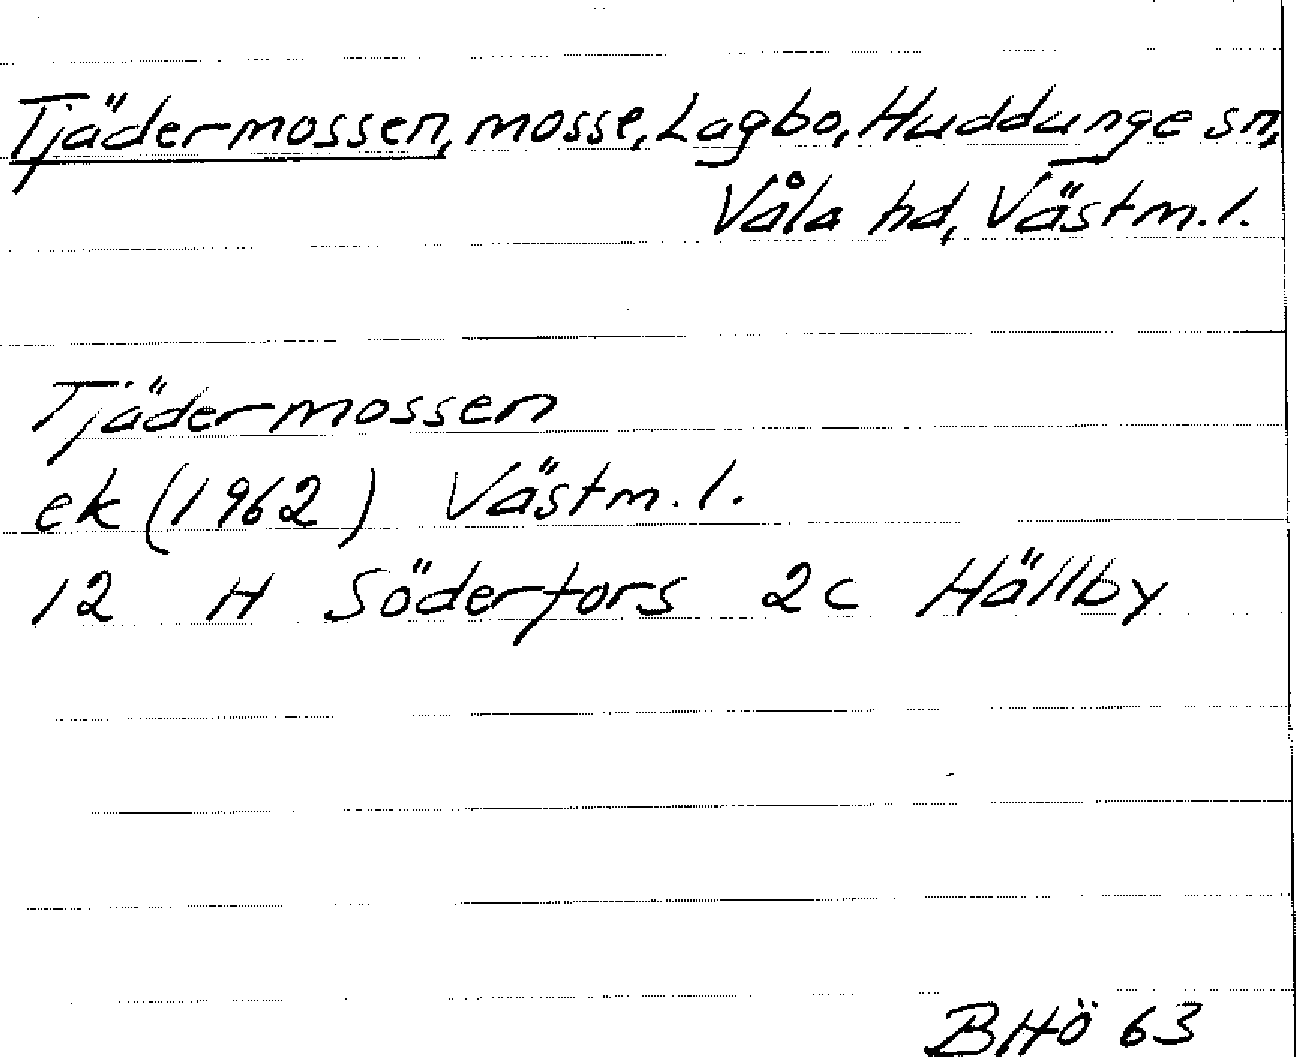 Tjädermossen, mosse, Lagbo, Huddunge sn,
Våla hd, Västm. l.
Tjädermossen
ek (1962) Västm. l.
12 H Söderfors 2c Hällby
BHÖ 63